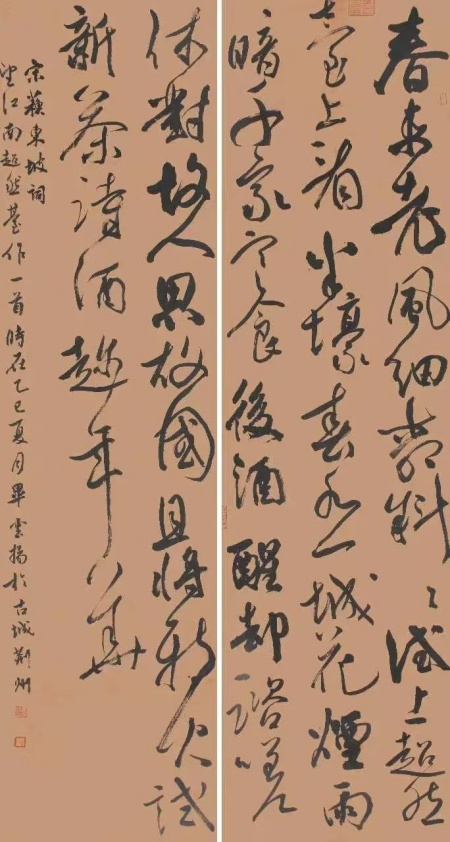 春未老風細柳斜〻試上超然
臺上看半壕春水一城花煙雨
暗千家寒食後酒醒却諮嗟
休對故人思故國且將新火試
新茶詩酒趁年華
宋蘇東坡詞
望江南超然臺作一首時在乙巳夏月畢雲揚於古城荊州